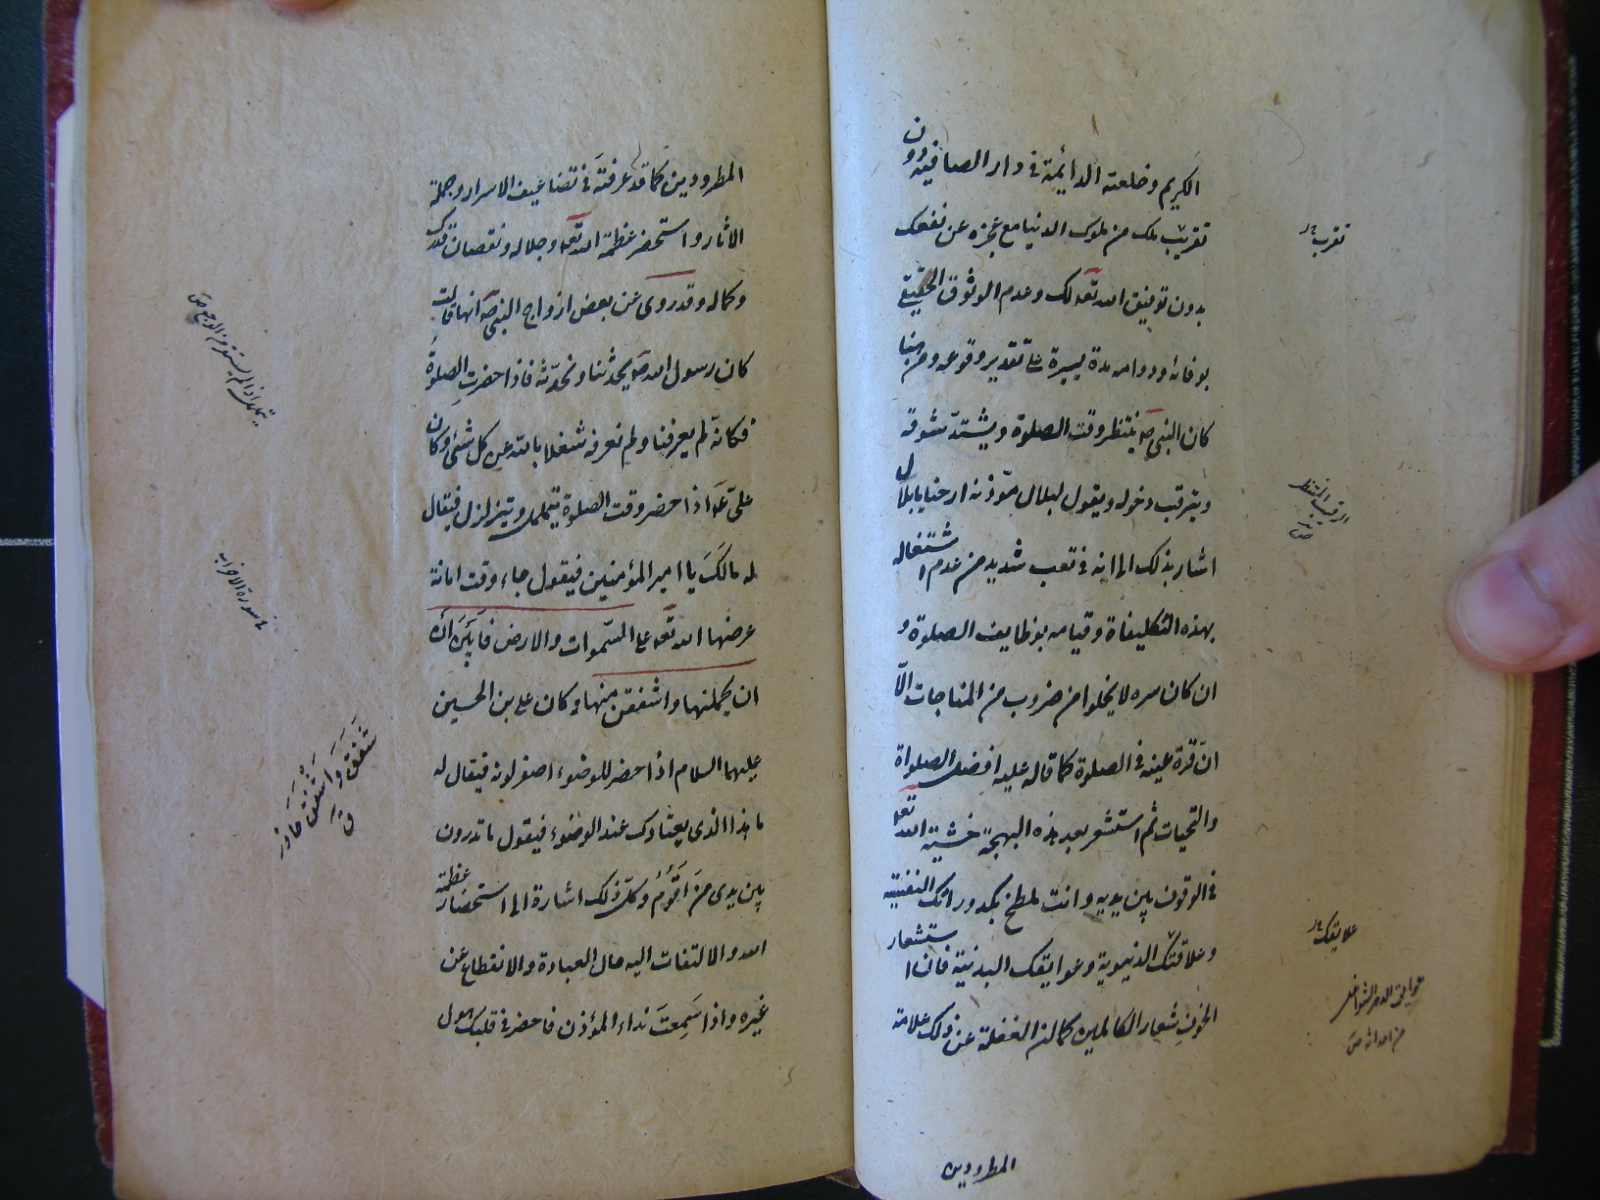 الكريم وخلعته الدائمة في دار الصافية دون
تقريب ملك من ملوك الدنيا مع عجزه عن نفعك
بدون توفيق الله تعه لك وعدم الوثوق الحقيقي
بوفائه ودوامه مدة يسيرة على تقدير وقوعه ومن هنا
كان النبي صه ينتظر وقت الصلوة ويشتد شوقه
ويترقب دخوله ويقول لبلال مؤذنه ارحنا يا بلال
اشار بذلك الى انه في تعب شديد من عدم اشتغاله
بهذه التكليفاة وقيامه بوظايف الصلوة و
ان كان سره لا يخلوا من ضروب من المناجات الّا
انّ قرة عينه في الصلوة كما قاله عليه افضل الصلواة
والتحيات ثم استشعر بعد هذه البهجة خشية الله تعه
في الوقوف بين يديه وانت ملطخ بكدوراتك النفسية
وعلاقتك الدنيوية وعوايقك البدنية فان استشعار
الخوف شعار الكاملين كما ان الغفلة عن ذلك علامة
المطرودين
تقرب
المنتظر
علايقك
عوايق الدهر الشواغل
من احداثه ص
المطرودين كما قد عرفته في تضاعيف الاسرار وجملة
الاثار واستحضر عظمة الله تعه وجلاله ونقصان قدرك
وكماله وقد روى عن بعض ازواج النبي صه انها قالت
كان رسول الله صه يحدثنا ونحدّثه فاذا حضرت الصلوة
فكانه لم يعرفنا ولم نعرفه شغلا بالله عن كل شئ وكان
عليّ عه اذا حضر وقت الصلوة يتململ ويتزلزل فيقال
له مالَكَ يا امير المؤمنين فيقول جاء وقت امانة
عرضها الله تعه على السّموات والارض فابين
ان يحملنها واشفقن منها وكان على بن الحسين
عليهما السلام اذا حضر للوضوء اصفر لونه فيقال له
ما هذا الذى يعتادك عند الوضوء فيقول ما تدرون
بين يدى مَن اقومُ وكلّ ذلك اشارة الى استحضار عظمة
الله والالتفات اليه حال العبادة والانقطاع عن
غيره واذا سَمِعتَ نداء المؤذن فاحضر في قلبك هول
سورة الاحزاب
شَفَقَ واَشفَقَ حاذر
ق